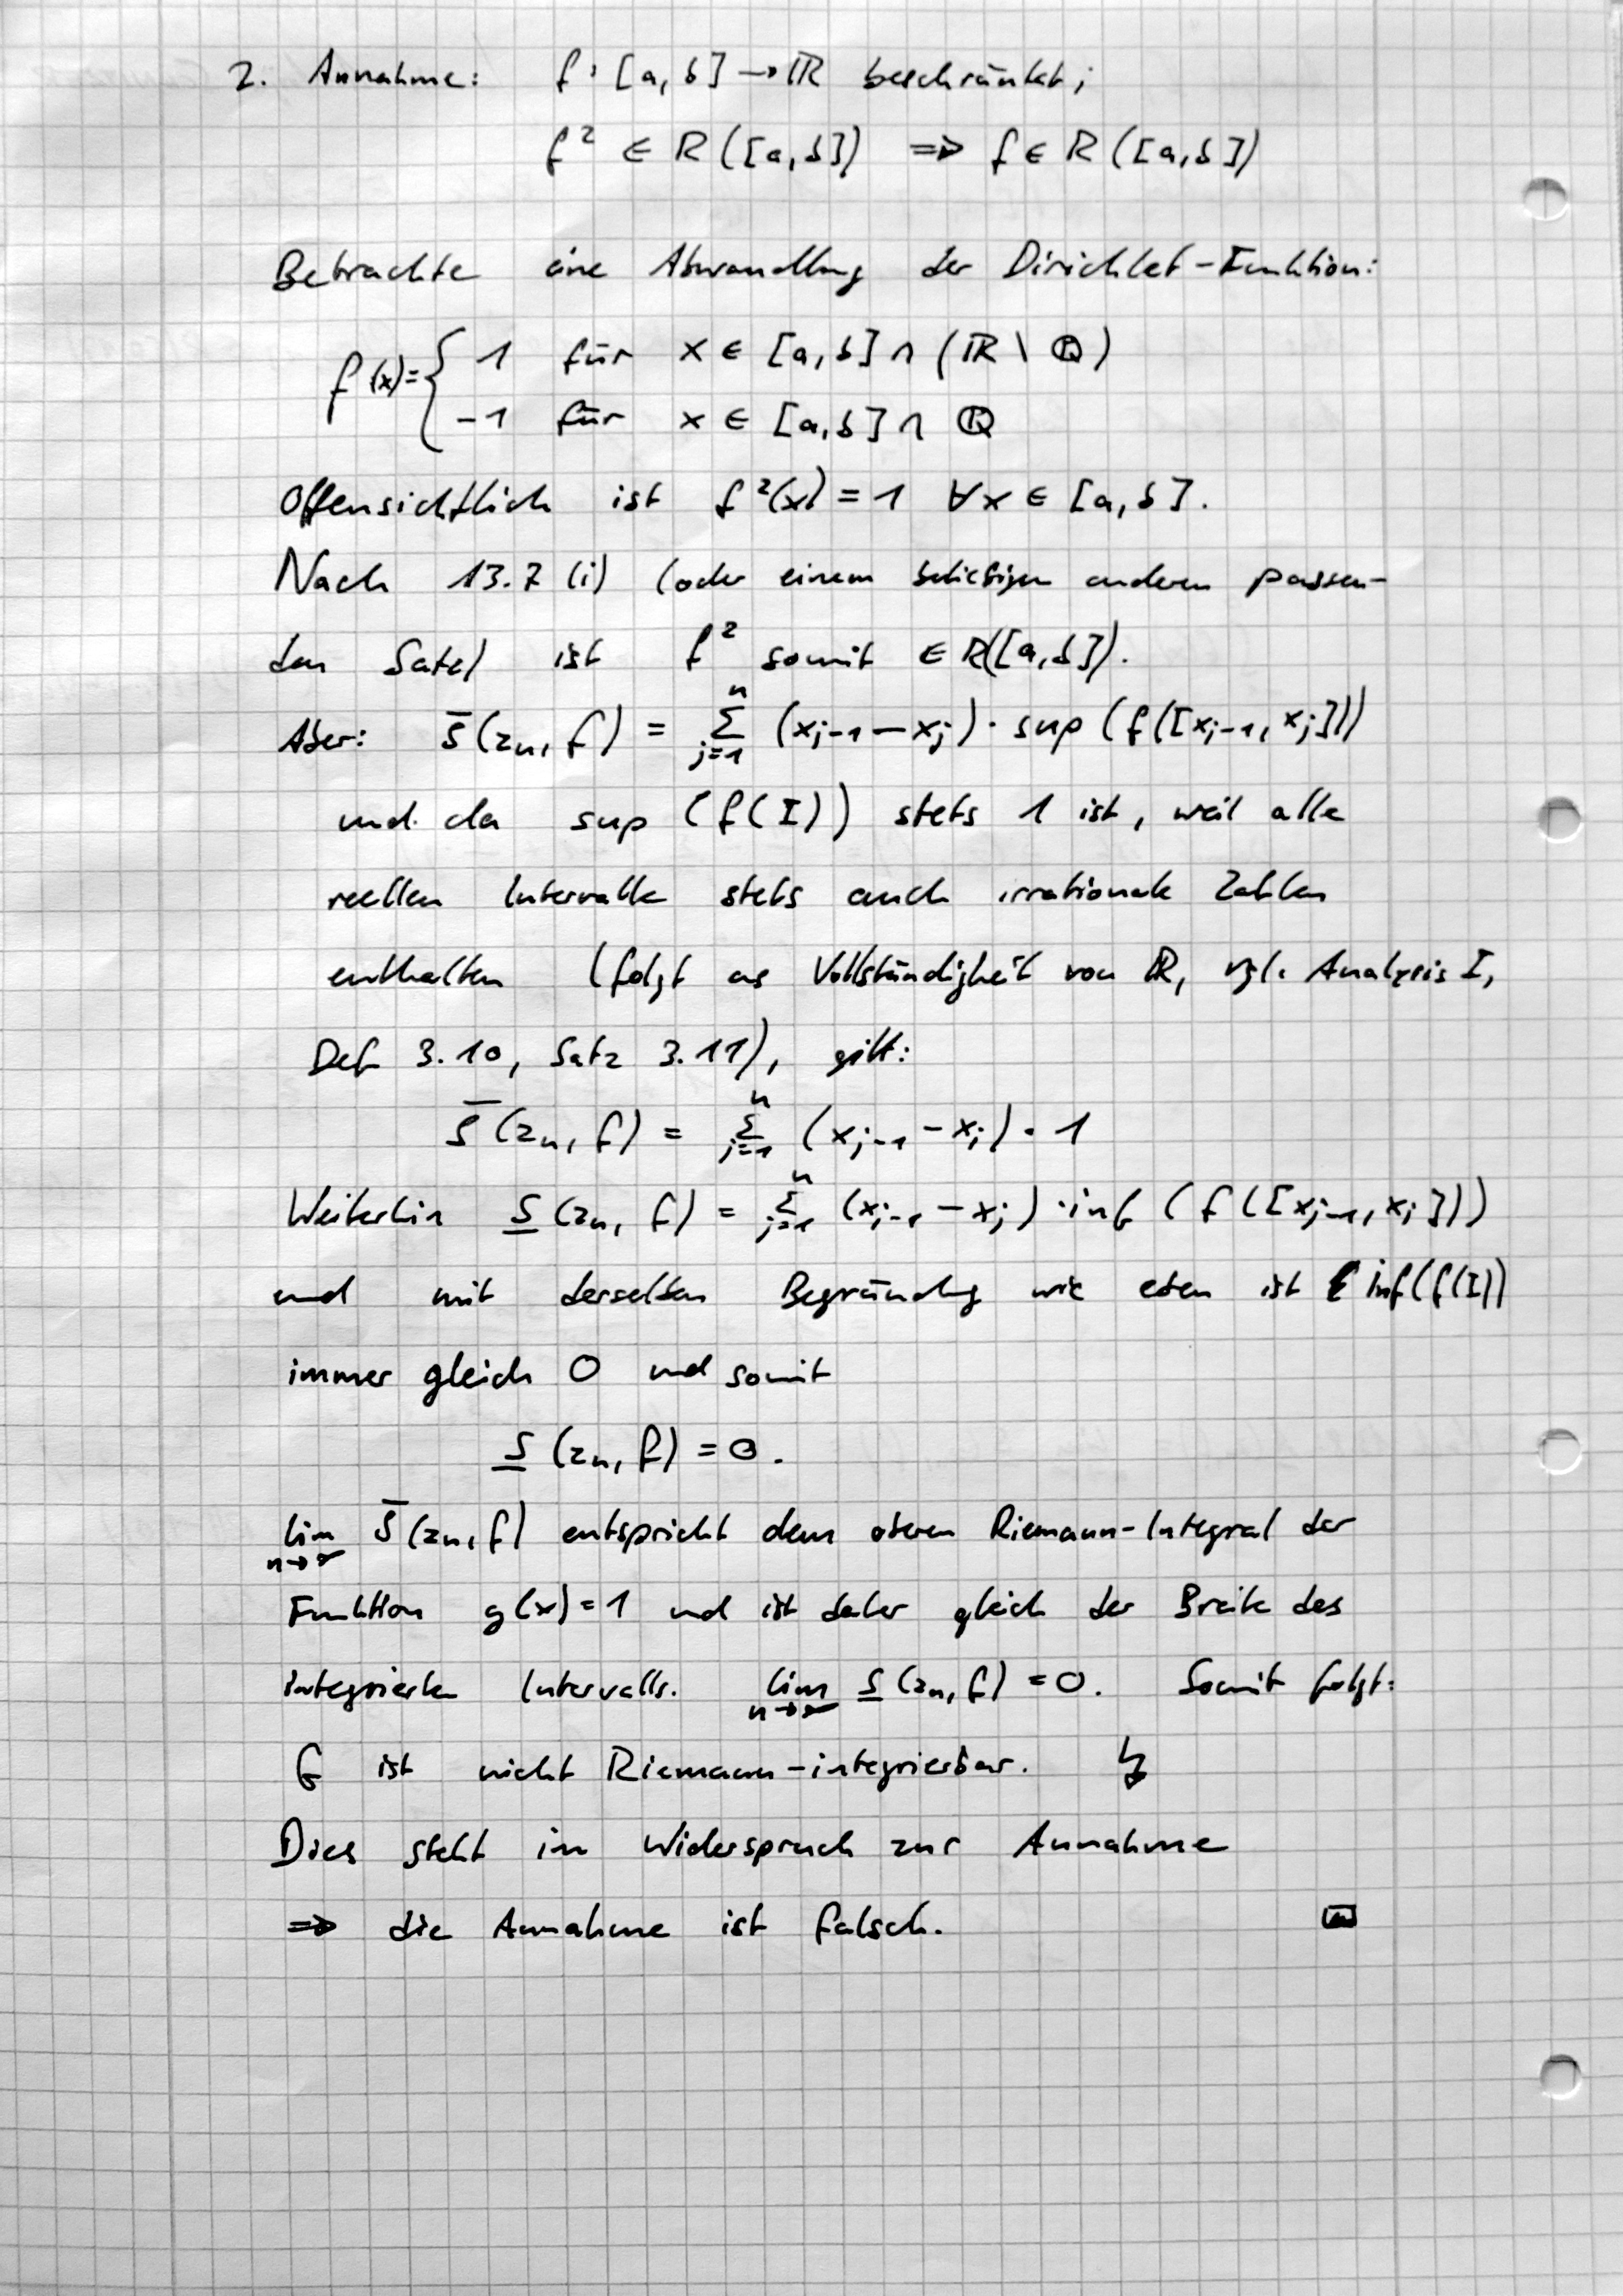 2. Annahme: f: [a, b] → ℝ beschränkt;
f² ∈ R([a,b]) ⇒ f ∈ R([a,b])
Betrachte eine Abwandlung der Dirichlet-Funktion:
f(x) = { 1 für x ∈ [a,b] ∩ (ℝ \ ℚ)
-1 für x ∈ [a,b] ∩ ℚ
Offensichtlich ist f²(x) = 1 ∀x ∈ [a,b].
Nach 13.7 (i) (oder einem beliebigen anderen passen-
den Satz) ist f² somit ∈ R([a,b]).
Aber: S̅(zₙ, f) = Σⁿⱼ₌₁ (xⱼ₋₁ - xⱼ) · sup (f([xⱼ₋₁, xⱼ]))
und da sup (f(I)) stets 1 ist, weil alle
reellen Intervalle stets auch irrationale Zahlen
enthalten (folgt as Vollständigkeit von ℝ, vgl. Analysis I,
Def 3.10, Satz 3.11), gilt:
S̅(zₙ, f) = Σⁿⱼ₌₁ (xⱼ₋₁ - xⱼ) · 1
Weiterhin S̲(zₙ, f) = Σⁿⱼ₌₁ (xⱼ₋₁ - xⱼ) · inf (f([xⱼ₋₁, xⱼ]))
und mit derselben Begründung wie eben ist inf(f(I))
immer gleich 0 und somit
S̲(zₙ, f) = 0.
lim n→∞ S̅(zₙ, f) entspricht dem oberen Riemann-Integral der
Funktion g(x) = 1 und ist daher gleich der Breite des
integrierten Intervalls. lim n→∞ S̲(zₙ, f) = 0. Somit folgt:
f ist nicht Riemann-integrierbar. ↯
Dies steht im Widerspruch zur Annahme
⇒ die Annahme ist falsch.